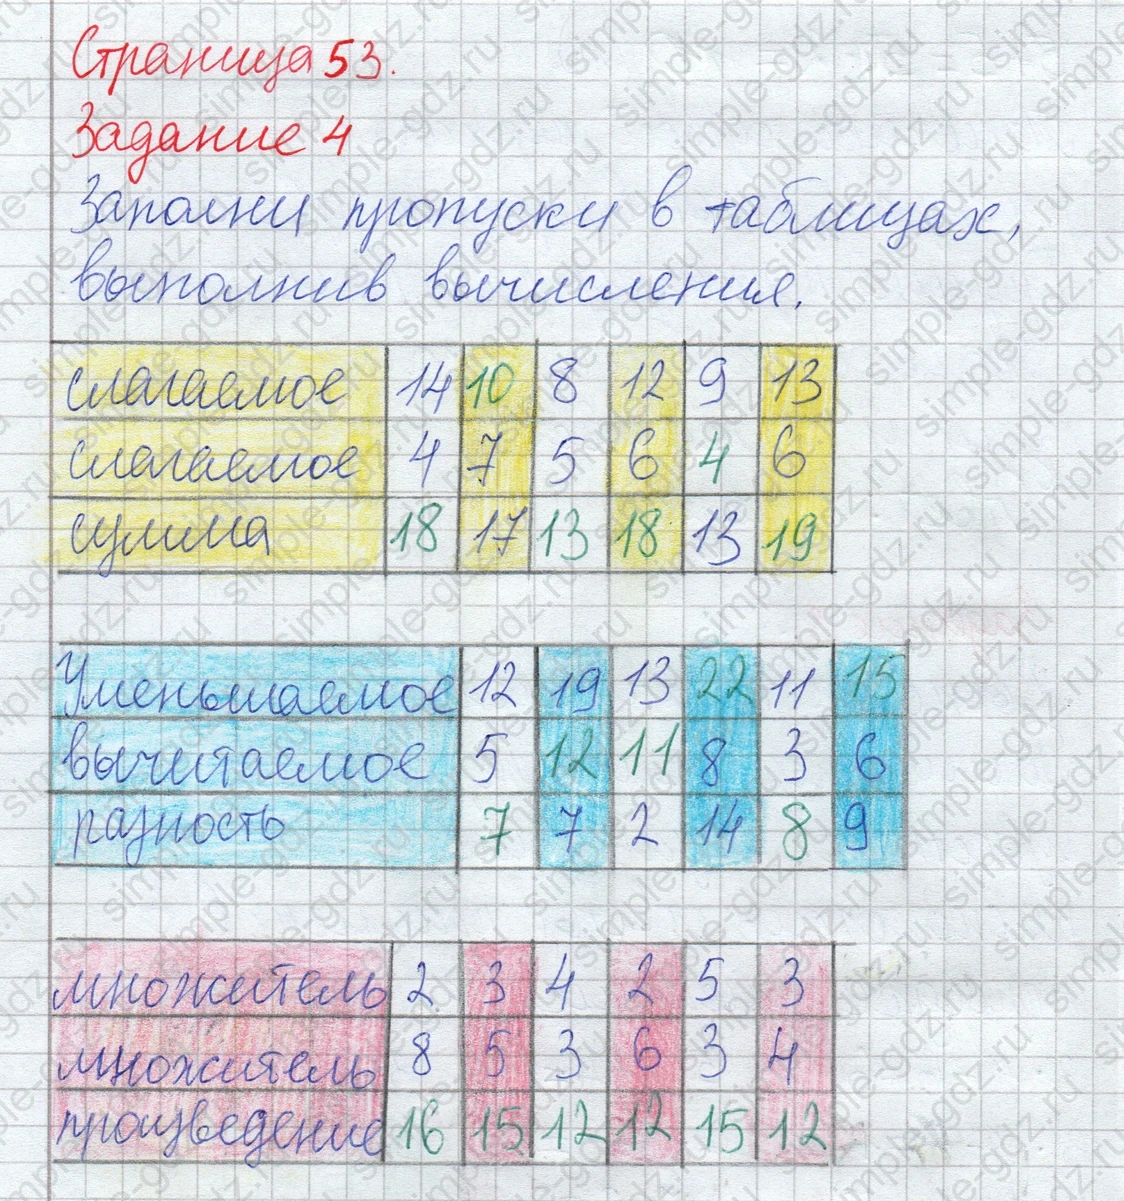 Страница 53.
Задание 4
Заполни пропуски в таблицах,
выполнив вычисления.
слагаемое 14 10 8 12 9 13
слагаемое 4 7 5 6 4 6
сумма 18 17 13 18 13 19
Уменьшаемое 12 19 13 22 11 15
вычитаемое 5 12 11 8 3 6
разность 7 7 2 14 8 9
множитель 2 3 4 2 5 3
множитель 8 5 3 6 3 4
произведение 16 15 12 12 15 12
simple-gdz.ru